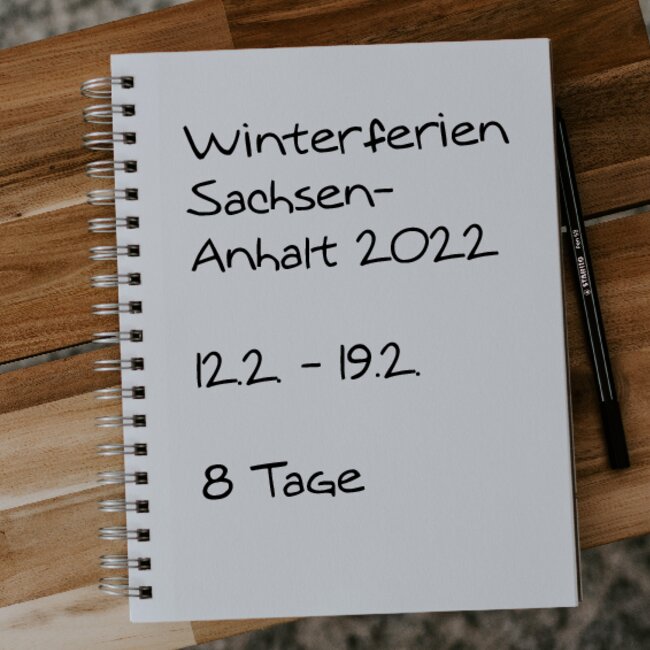 Winterferien
Sachsen-
Anhalt 2022
12.2. - 19.2.
8 Tage
STABILO